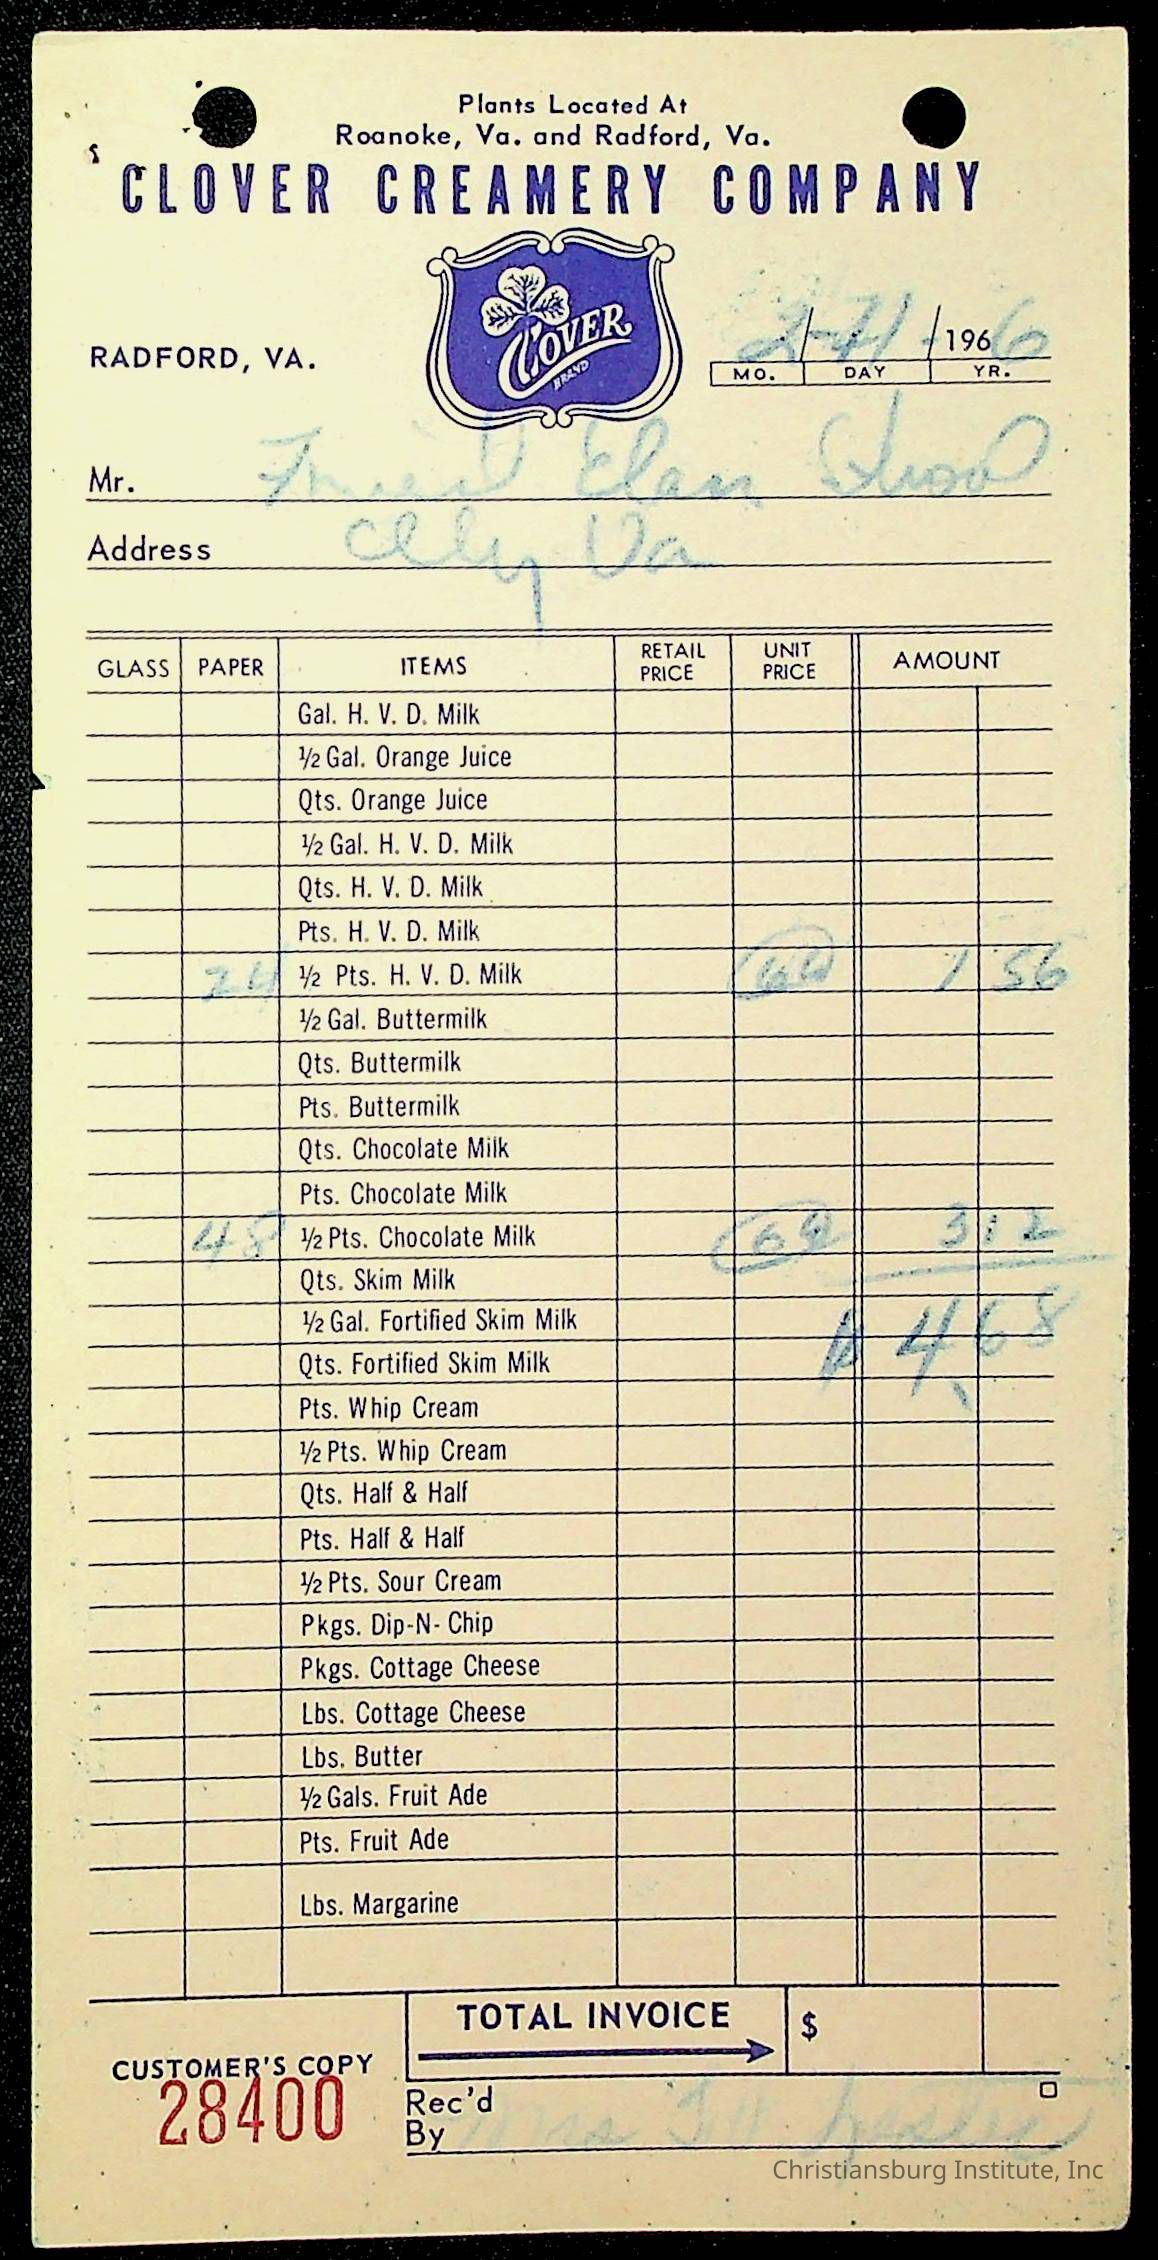 Plants Located At
Roanoke, Va. and Radford, Va.
CLOVER CREAMERY COMPANY
CLOVER
BRAND
RADFORD, VA.
2-71-1966
MO. DAY YR.
Mr. Friend Elem School
Address Va
GLASS PAPER ITEMS RETAIL PRICE UNIT PRICE AMOUNT
Gal. H. V. D. Milk
½ Gal. Orange Juice
Qts. Orange Juice
½ Gal. H. V. D. Milk
Qts. H. V. D. Milk
Pts. H. V. D. Milk
24 ½ Pts. H. V. D. Milk 1 56
½ Gal. Buttermilk
Qts. Buttermilk
Pts. Buttermilk
Qts. Chocolate Milk
Pts. Chocolate Milk
48 ½ Pts. Chocolate Milk 3 12
Qts. Skim Milk
½ Gal. Fortified Skim Milk
$ 4 68
Qts. Fortified Skim Milk
Pts. Whip Cream
½ Pts. Whip Cream
Qts. Half & Half
Pts. Half & Half
½ Pts. Sour Cream
Pkgs. Dip-N-Chip
Pkgs. Cottage Cheese
Lbs. Cottage Cheese
Lbs. Butter
½ Gals. Fruit Ade
Pts. Fruit Ade
Lbs. Margarine
TOTAL INVOICE $
CUSTOMER'S COPY
28400
Rec'd By Mrs
Christiansburg Institute, Inc